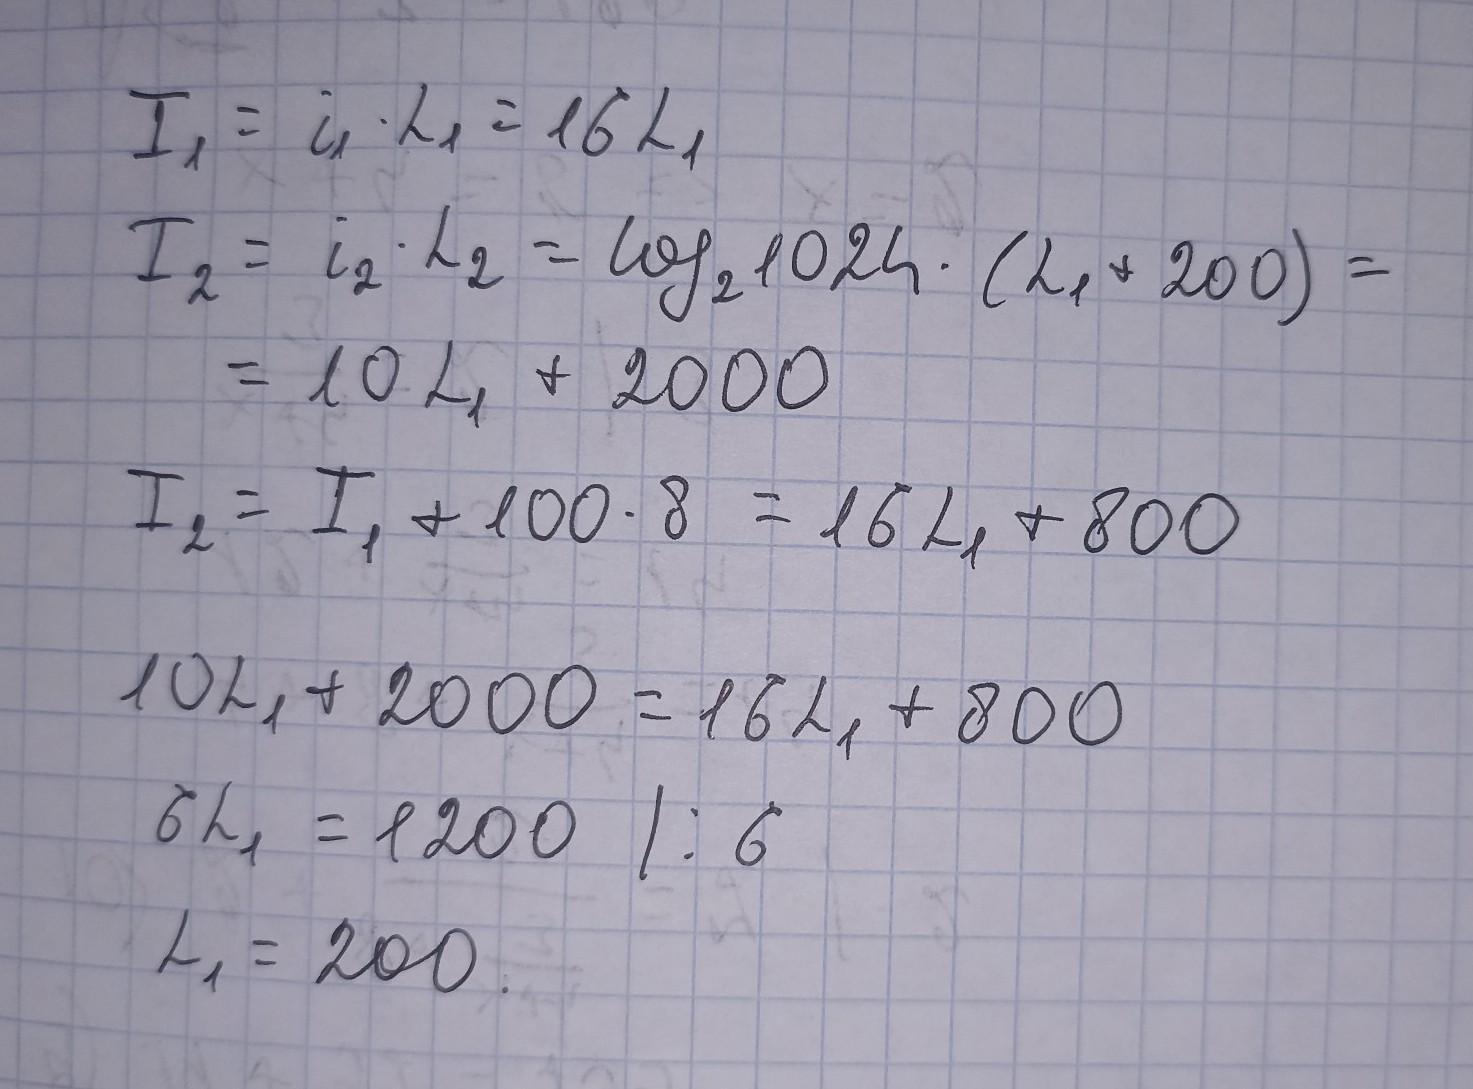 I₁ = i₁ · L₁ = 16L₁
I₂ = i₂ · L₂ = log₂1024 · (L₁ + 200) =
= 10L₁ + 2000
I₂ = I₁ + 100 · 8 = 16L₁ + 800
10L₁ + 2000 = 16L₁ + 800
6L₁ = 1200 /: 6
L₁ = 200.